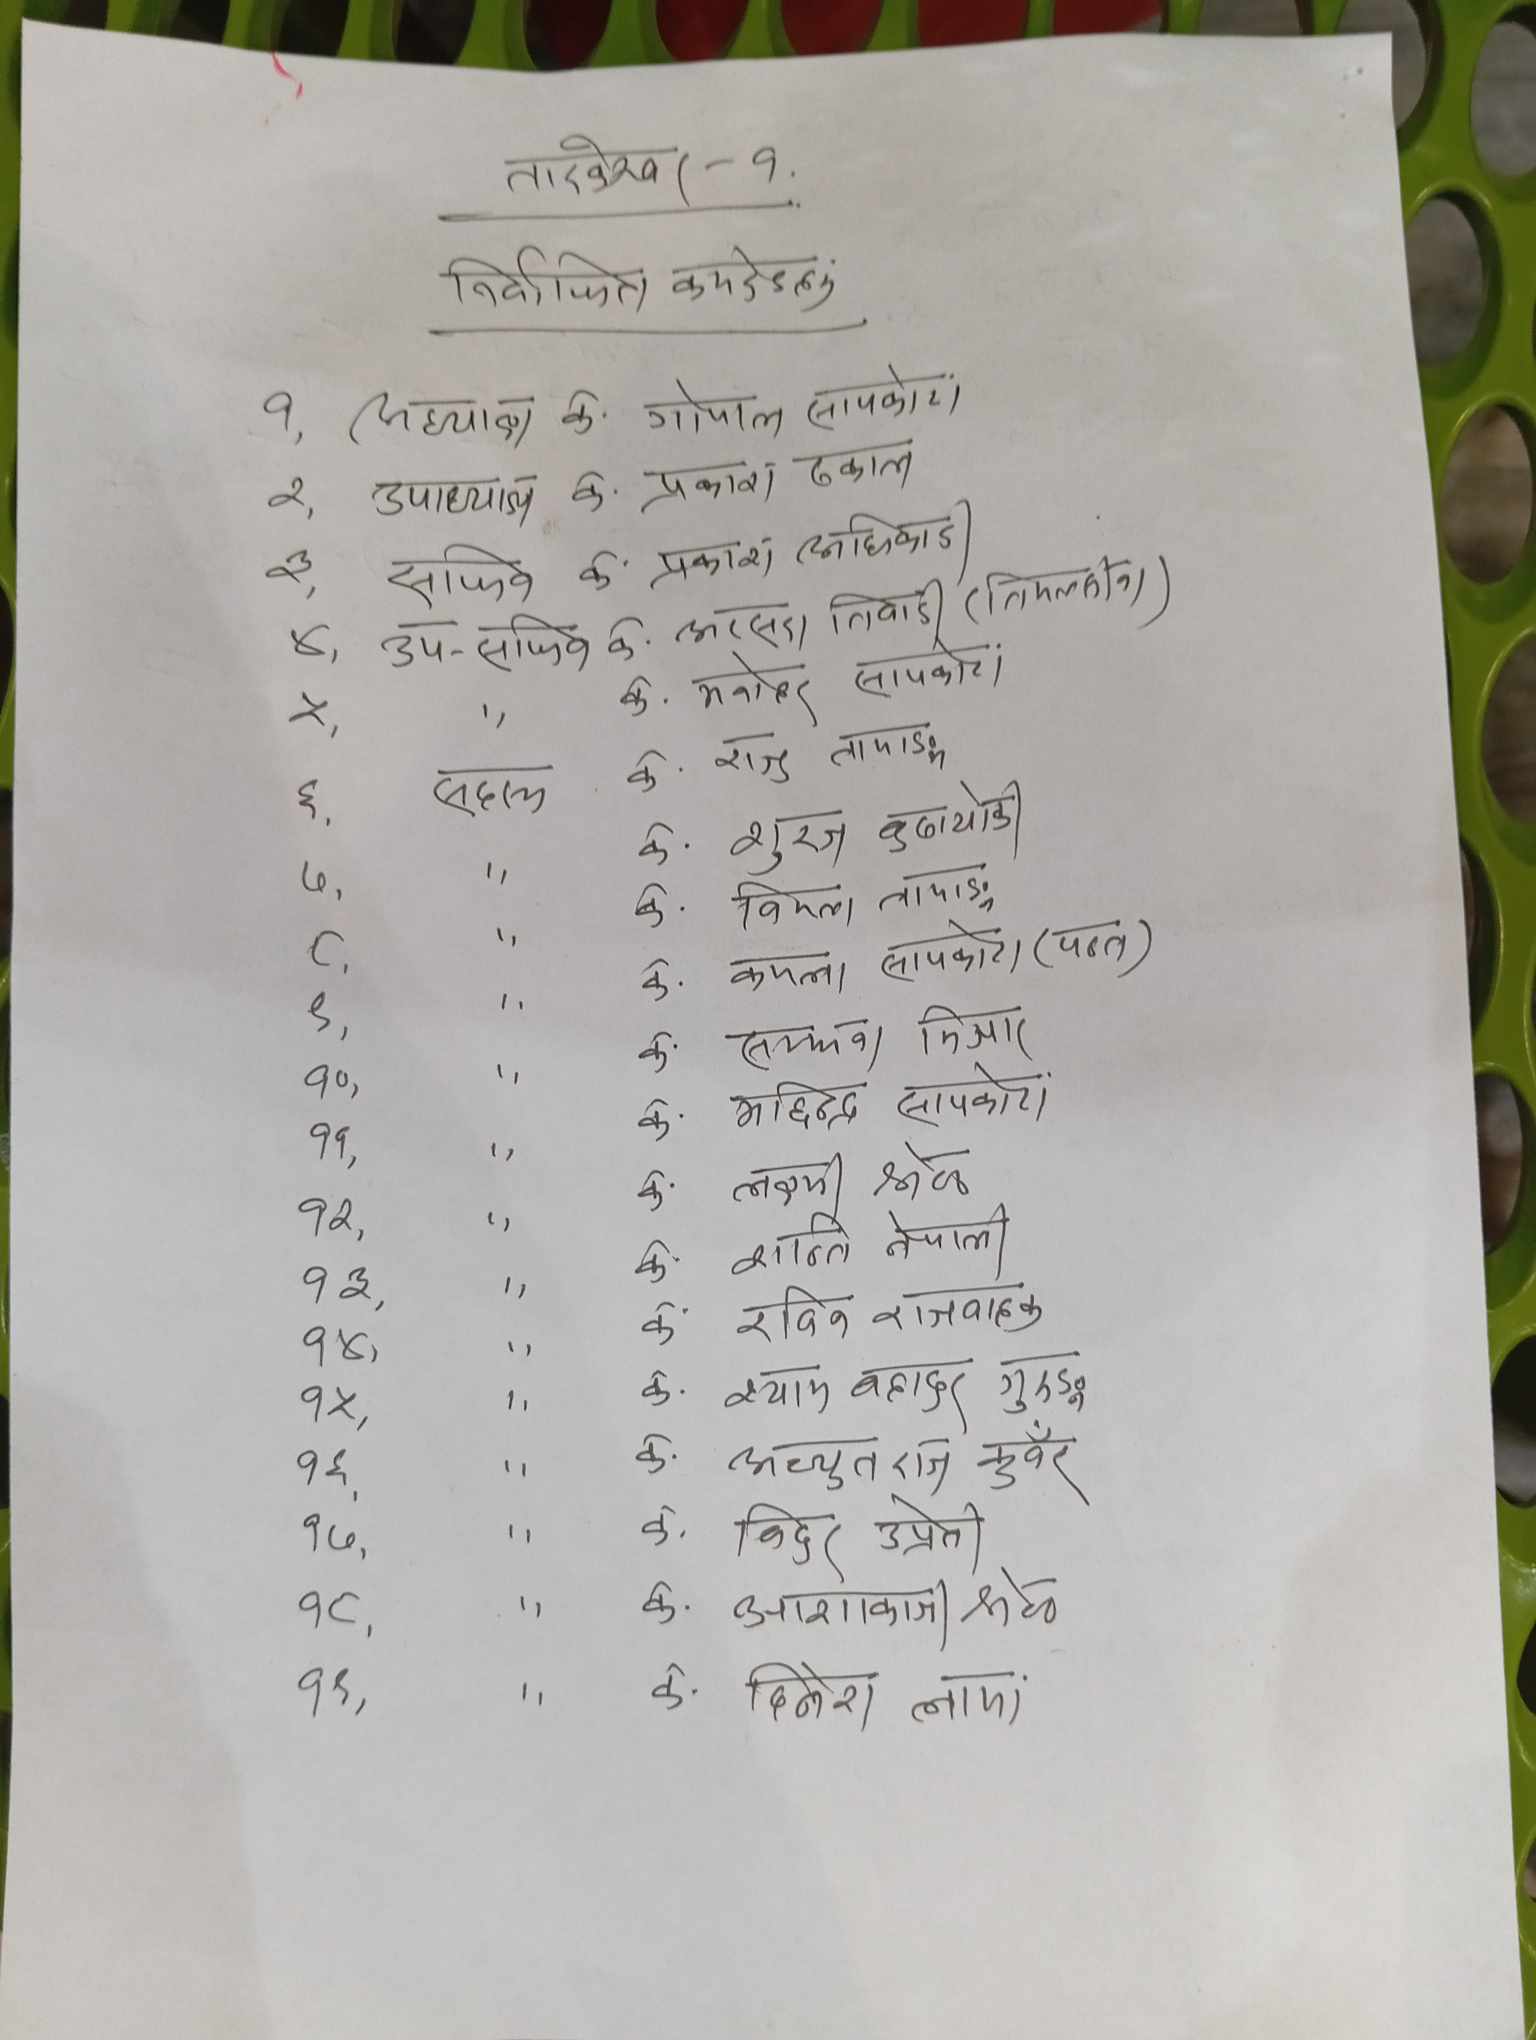 तारकेश्वर - १.
निर्वाचित कमरेडहरु
१, अध्यक्ष के. गोपाल सापकोटा
२, उपाध्यक्ष के. प्रकाश ढकाल
३, सचिव के. प्रकाश अधिकारी
४, उप-सचिव के. तिवारी (तिमल्सीना)
५, " के. मनोहर सापकोटा
६. सदस्य के. राजु तामाङ्ग
७, " के. शुरज बुढाथोकी
८, " के. विमला तामाङ्ग
९, " के. कमला सापकोटा (पन्त)
१०, " के. सम्झना मिजार
११, " के. मछिन्द्र सापकोटा
१२, " के. लक्ष्मी श्रेष्ठ
१३, " के. शान्ति नेपाली
१४, " के. रविन राजवाहक
१५, " के. श्याम बहादुर गुरुङ्ग
१६, " के. अच्युत राज कुवँर
१७, " के. विदुर उप्रेती
१८, " के. आशाकाजी श्रेष्ठ
१९, " के. दिनेश लामा